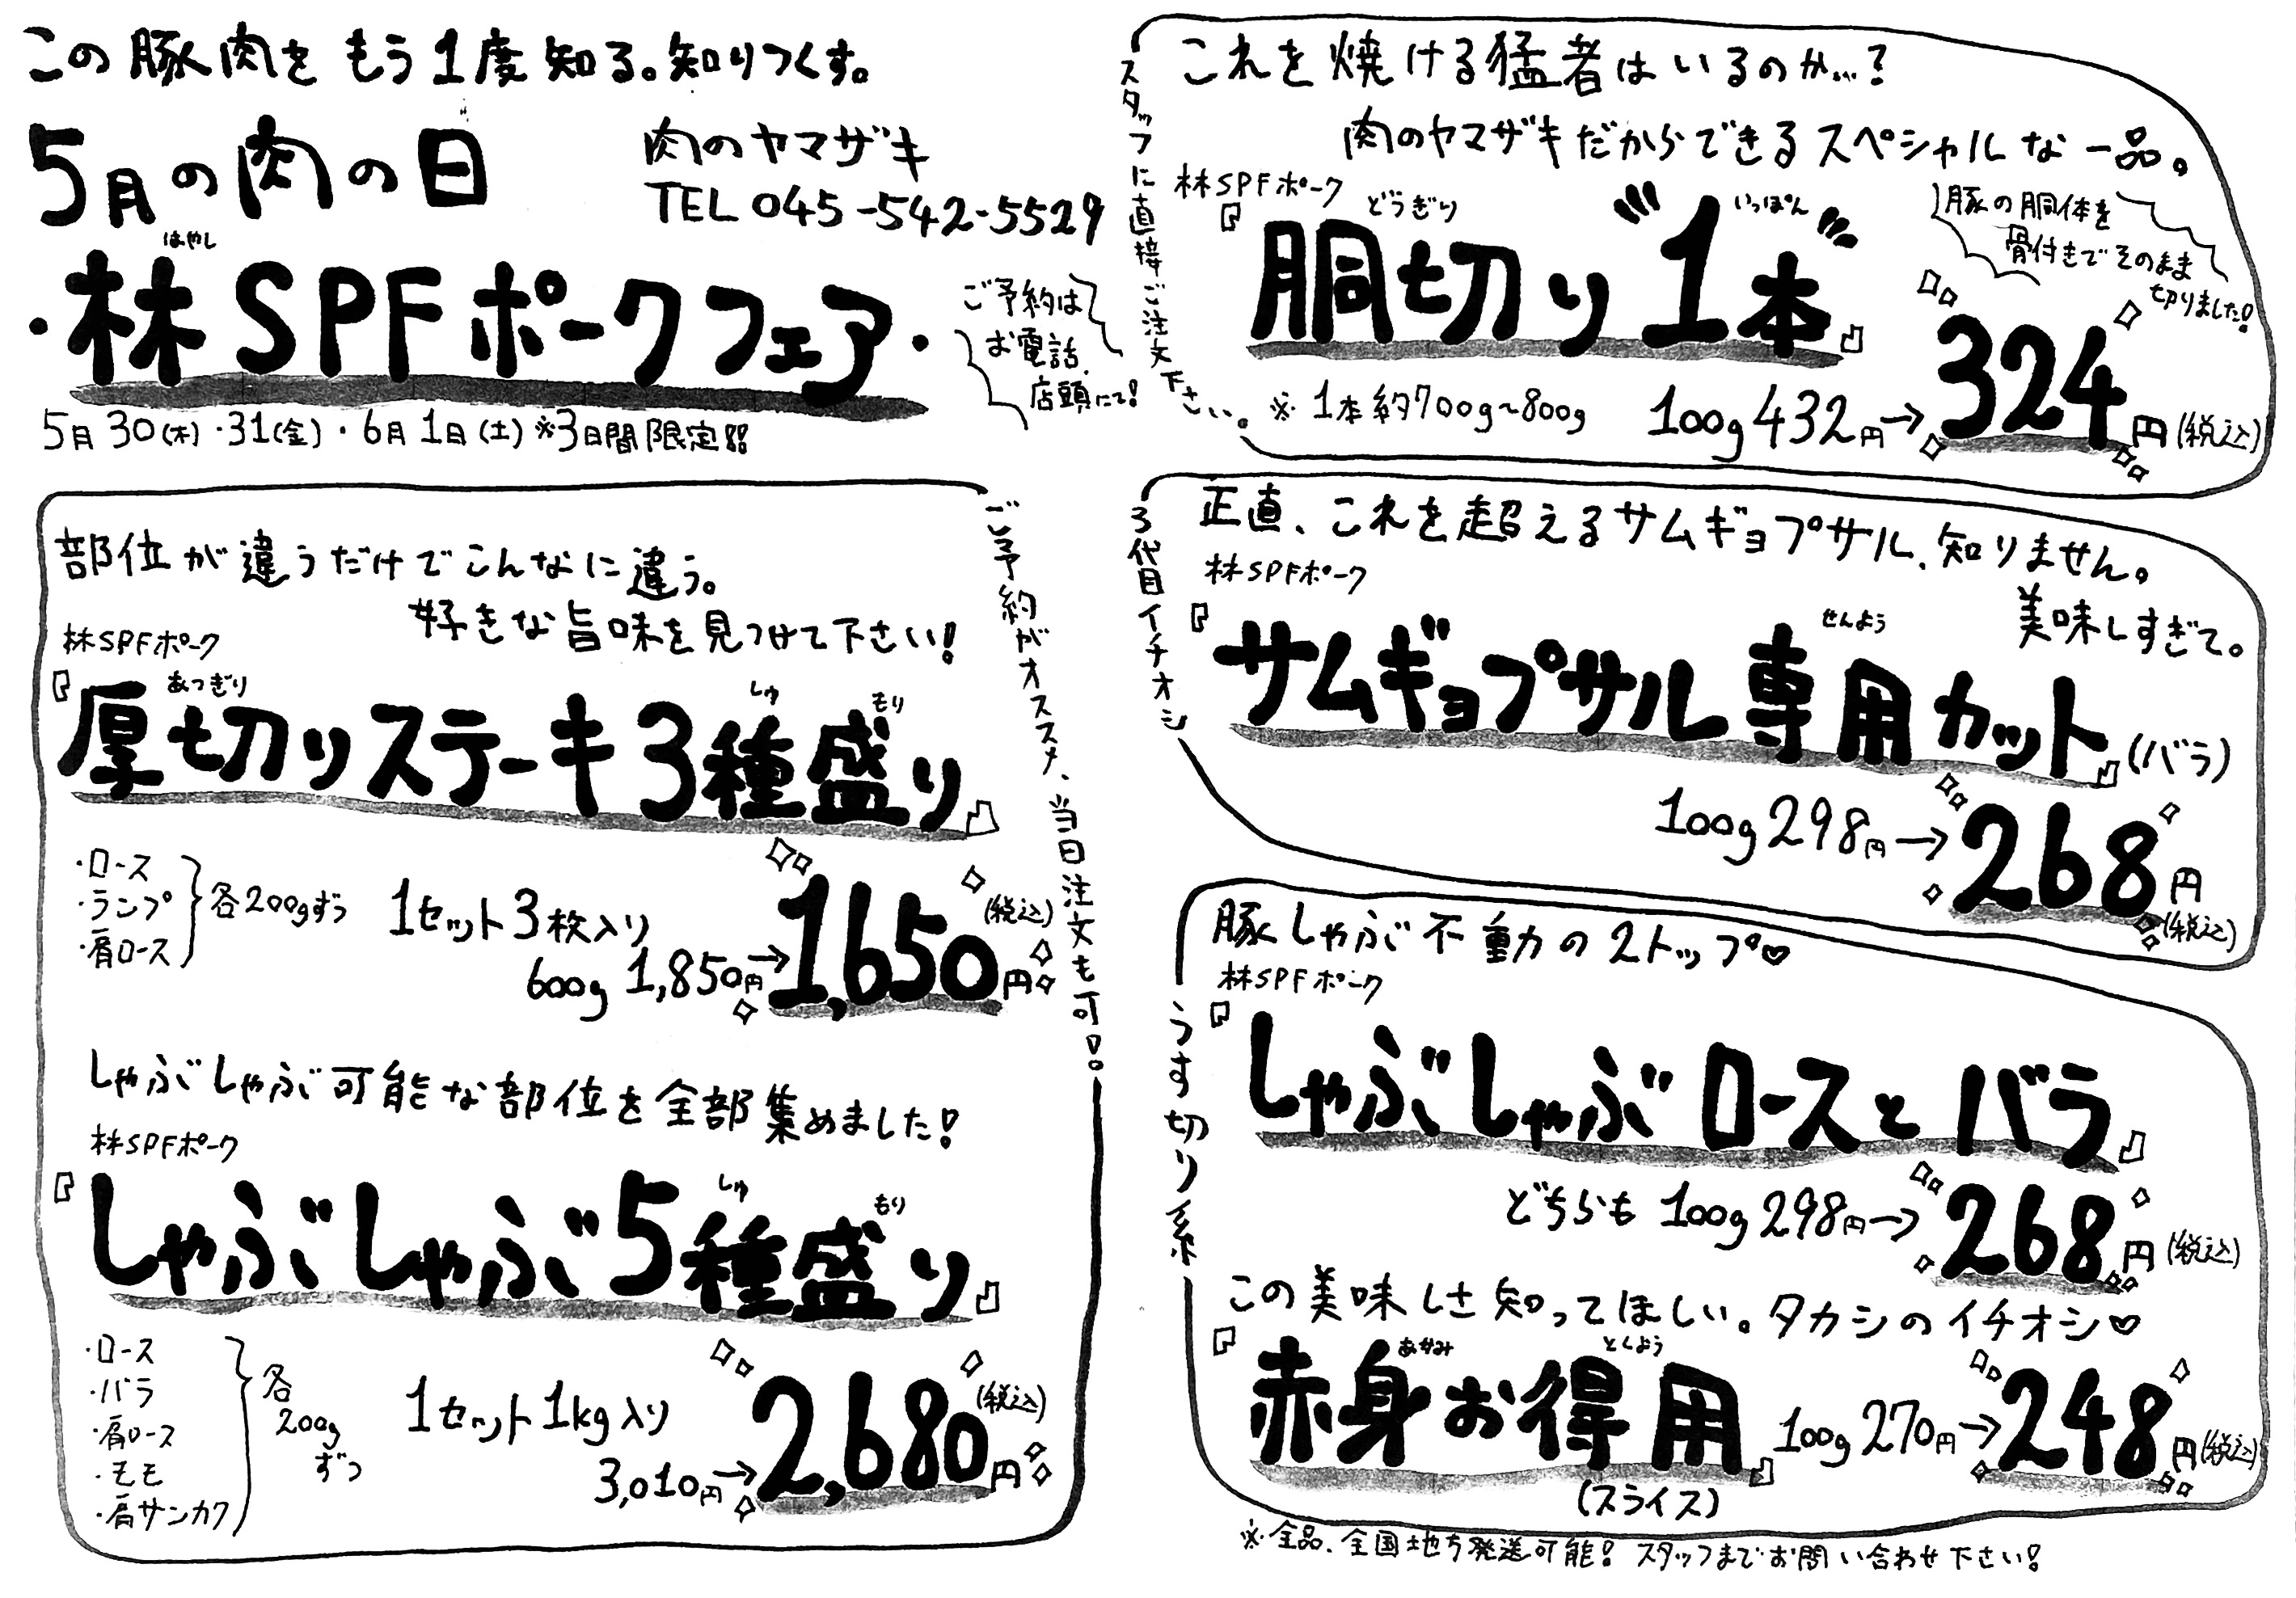 この豚肉をもう1度知る。知りつくす。
5月の肉の日
肉のヤマザキ
TEL 045-542-5529
はやし
・林SPFポークフェア・
ご予約は
お電話、
店頭にて!
5月30(木)・31(金)・6月1日(土)※3日間限定!!
ご予約がオススメ、当日注文も可!。
部位が違うだけでこんなに違う。
好きな旨味を見つけて下さい!
林SPFポーク
あつぎり しゅ もり
『厚切りステーキ3種盛り』
・ロース
・ランプ
・肩ロース
各200gずつ
1セット3枚入り
600g 1,850円→1,650円(税込)
しゃぶしゃぶ可能な部位を全部集めました!
林SPFポーク
しゅ もり
『しゃぶしゃぶ5種盛り』
・ロース
・バラ
・肩ロース
・モモ
・肩サンカク
各
200g
ずつ
1セット1kg入り
3,010円→2,680円(税込)
スタッフに直接ご注文下さい。
これを焼ける猛者はいるのか…?
肉のヤマザキだからできるスペシャルな一品。
林SPFポーク
どうぎり いっぽん
『胴切り"1本"』
豚の胴体を
骨付きでそのまま
切りました!
※1本約700g~800g
100g 432円→324円(税込)
3代目イチオシ
正直、これを超えるサムギョプサル、知りません。
美味しすぎて。
林SPFポーク
せんよう
『サムギョプサル専用カット』(バラ)
100g 298円→268円(税込)
うす切り系
豚しゃぶ不動の2トップ♡
林SPFポーク
『しゃぶしゃぶロースとバラ』
どちらも 100g 298円→268円(税込)
この美味しさ知ってほしい。タカシのイチオシ♡
あかみ とくよう
『赤身お得用』
(スライス)
100g 270円→248円(税込)
※全品、全国地方発送可能! スタッフまでお問い合わせ下さい!